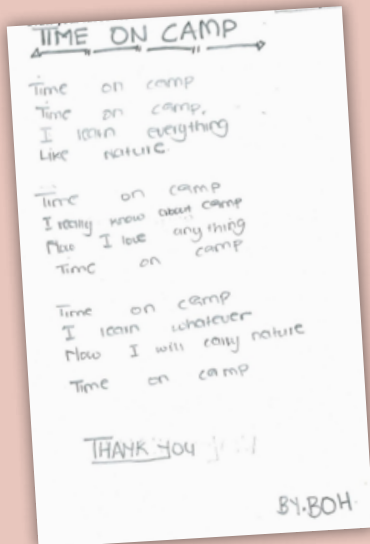 TIME ON CAMP
Time on camp
Time on camp,
I learn everything
Like nature
Time on camp
I really know about camp
Now I love any thing
Time on camp
Time on camp
I learn whatever
Now I will carry nature
Time on camp
THANK YOU
BY.BOH